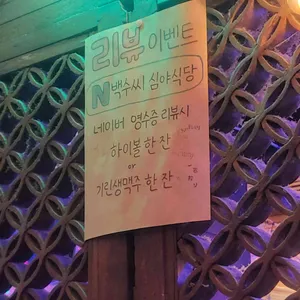 리뷰 이벤트
N 백수씨 심야식당
네이버 영수증 리뷰시
하이볼 한 잔
or
기린생맥주 한 잔